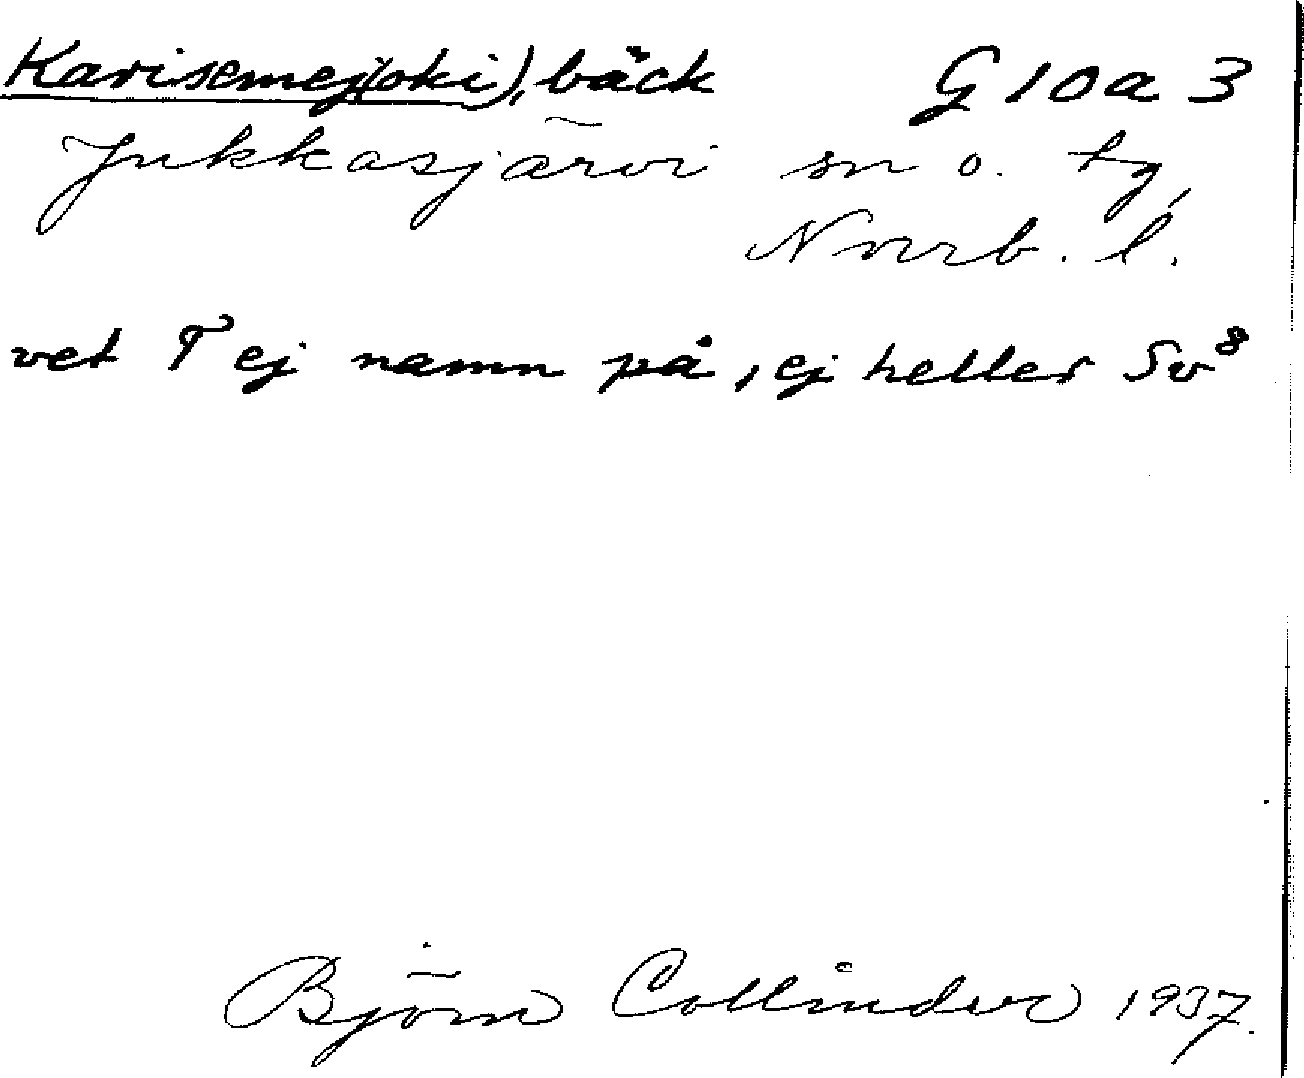 Karisemej(oki), bäck G 10 a 3
Jukkasjärvi sn o. tg,
Norrb. l.
vet T ej namn på, ej heller Sv⁸
Björn Collinder 1937.